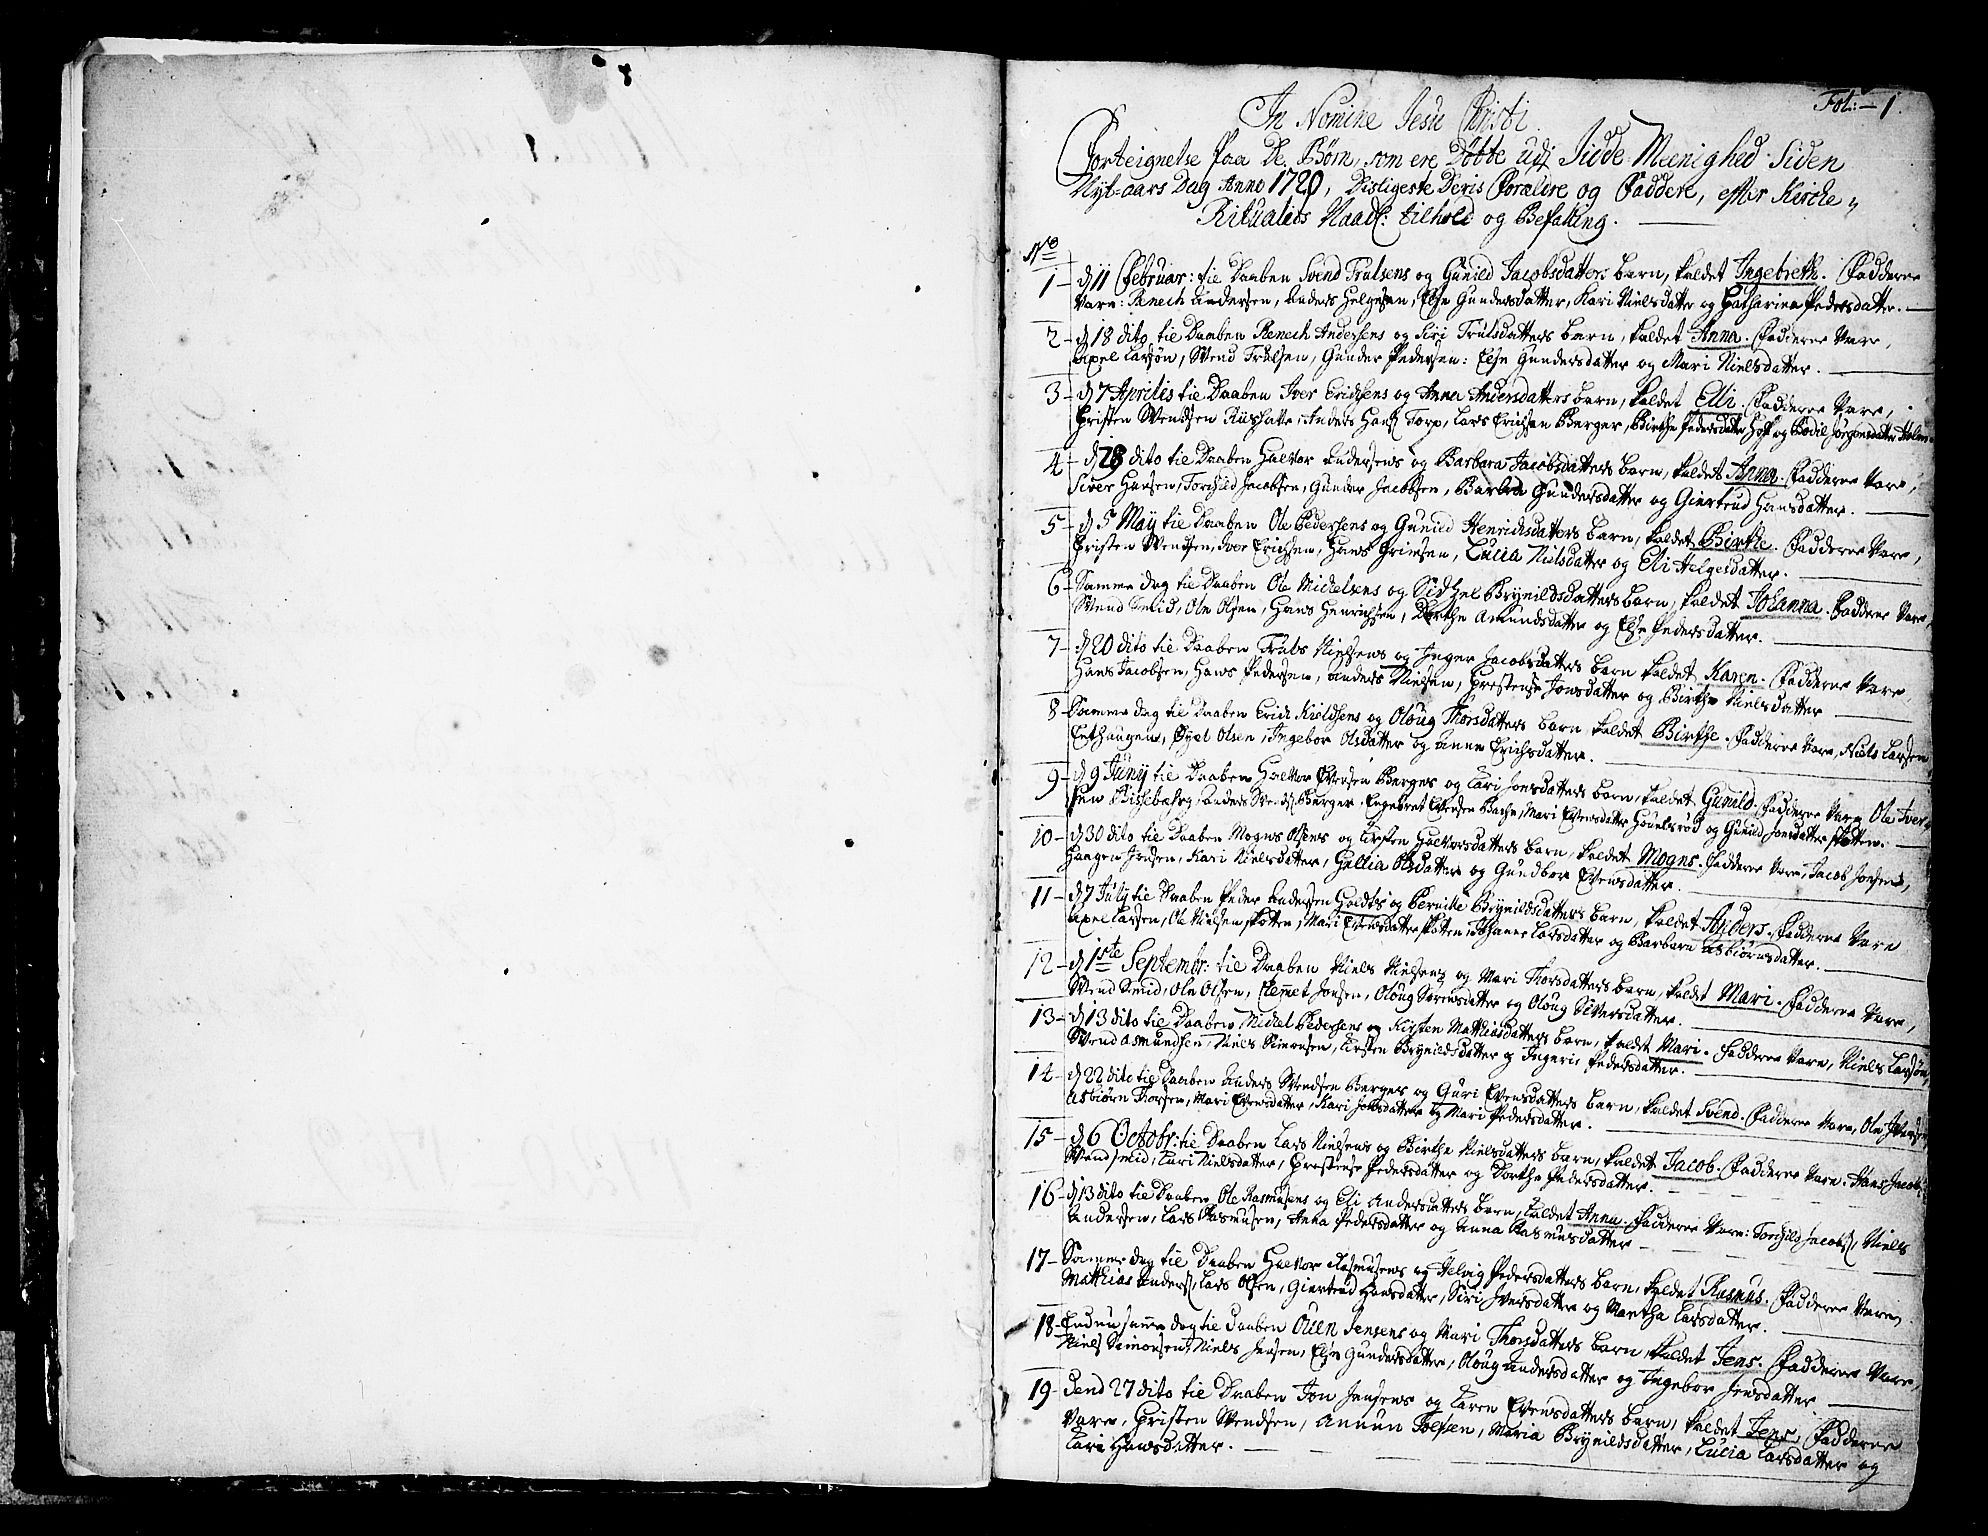 Fol: 1.
In Nomine Jesu Christi.
Forteignelse Paa De Børn, som ere Døbte udj Jidde Mænighed Siden
Nyt-aars Dag Anno 1720, Disligeste Deris Forældre og Faddere, efter Kirche
Ritualets Naad: tilhold og Befalling.
No
1 d 11 Februar: til Daaben Svend Trulsens og Gunild Jacobsdatters barn, kaldet Ingebreth. Fadderne
Vare: Renech Andersen, Anders Helgesen, Else Gundersdatter, Kari Nielsdatter og Catharina Pedersdatter.
2 d 18 dito til Daaben Renech Andersens og Siri Trulsdatters barn, kaldet Anna. Fadderne Vare,
Axel Larsøn, Svend Trulsen, Gunder Pedersen: Else Gundersdatter og Mari Nielsdatter.
3 d 7 Aprilis til Daaben Iver Erichsens og Anna Andersdatters barn, kaldet Elli. Fadderne Vare,
Christen Svendsen, Anders Hans: Torp, Lars Erichsen Berger, Birthe Pedersdatter Hoff og Bodil Jørgensdatter
4 d 28 dito til Daaben Halvor Andersens og Barbara Jacobsdatters barn, kaldet Anna. Fadderne Vare,
Siver Hansen, Torchild Jacobsen, Gunder Jacobsen, Barbra Gundersdatter og Giertrud Hansdatter.
5 d 5 May til Daaben Ole Pedersens og Gunild Henrichsdatters barn, kaldet Birthe. Fadderne Vare,
Christen Svendsen, Iver Erichsen, Hans Grimsen, Lucia Nielsdatter og Eli Helgesdatter.
6 Samme dag til Daaben Ole Michelsens og Sidzel Brynildsdatters barn, kaldet Johanna. Fadderne Vare,
Svend Smid, Ole Olsen, Hans Henrichsen, Dorthe Amundsdatter og Else Pedersdatter.
7 d 20 dito til Daaben Truls Nielsens og Inger Jacobsdatters barn kaldet Karen. Fadderne Vare
Hans Jacobsen, Hans Pedersen, Anders Nielsen, Chrestense Jonsdatter og Birthe Nielsdatter
8 Samme dag til Daaben Erich Kieldsens og Oloug Thorsdatters barn kaldet Birthe. Fadderne Vare, Niels Larsen
Enthaugen, Olsen, Ingebor Olsdatter og Anne Erichsdatter.
9 d 9 Juny til Daaben Halvor Evensen Berges og Kari Jonsdatters barn, kaldet Gunild. Fadderne Vare Ole Iver-
sen Bissebaherg, Anders Svends: Berger, Engebret Evensen Bache, Mari Evensdatter og Gunild Jonsdatter Skotten.
10 d 30 dito til Daaben Mogns Olsens og Kirsten Halvorsdatters barn, kaldet Mogns. Fadderne Vare, Jacob Jonsen,
Haagen Jensen, Kari Nielsdatter, Gallia Olsdatter og Gundbor Evensdatter.
11 d 7 July til Daaben Peder Andersen Holdts og Pernille Brynildsdatters barn, kaldet Anders. Fadderne Vare
Axel Larsen, Ole Nielsen Skotten, Mari Evensdatter Skotten, Johanne Larsdatter og Barbara Asbiørnsdatter.
12 d 1ste Septembr: til Daaben Niels Nielsens og Mari Thorsdatters barn, kaldet Mari. Fadderne Vare,
Svend Smid, Ole Olsen, Clemet Jonsen, Oloug Sørensdatter og Oloug Siversdatter.
13 d 13 dito til Daaben Michel Pedersens og Kirsten Matthiasdatters barn, kaldet Mari. Fadderne Vare, Niels Larsøn,
Svend Asmundsen, Niels Simonsen, Kirsten Brynildsdatter og Ingerie Pedersdatter.
14 d 22 dito til Daaben Anders Svendsen Berges og Guri Evensdatters barn, kaldet Svend. Fadderne Vare, Ole Iversen
Asbiørn Thorsen, Mari Evensdatter, Kari Jonsdatter og Mari Pedersdatter.
15 d 6 Octobr: til Daaben Lars Nielsens og Birthe Nielsdatters barn, kaldet Jacob. Fadderne Vare: Hans Jacobs:
Svend Smid, Kari Nielsdatter, Chrestense Pedersdatter og Dorthe Pedersdatter.
16 d 13 dito til Daaben Ole Rasmusens og Eli Andersdatters barn, kaldet Anna. Fadderne Vare: Torchild Jacobs:, Niels
Andersen, Lars Rasmusen, Anna Pedersdatter og Anna Rasmusdatter
17 Samme dag til Daaben Halvor Rasmusens og Helvig Pedersdatters barn, kaldet Rasmus. Fadderne Vare,
Matthias Anders:, Lars Olsen, Giertrud Hansdatter, Siri Iversdatter og Martha Larsdatter.
18 Endnu samme dag til Daaben Ouen Jensens og Mari Thorsdatters barn, kaldet Jens. Fadderne Vare,
Niels Simonsen, Niels Jensen, Else Gundersdatter, Oloug Andersdatter og Ingebor Jensdatter
19 dend 27 dito til Daaben Jon Jensens og Karen Evensdatters barn, kaldet Jens, Fadderne
Vare, Christen Svendsen, Annun Tolfsen, Maria Brynildsdatter, Lucia Larsdatter og
Kari Hansdatter.